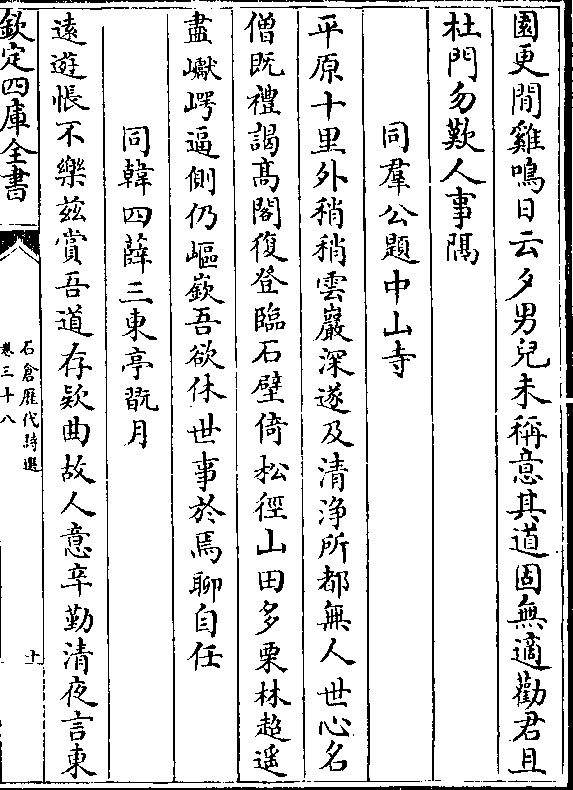 園更聞雞鳴日云夕男兒未稱意其道固無適勸君且
杜門勿歎人事隔
同羣公題中山寺
平原十里外稍稍雲巖深遂及清淨所都無人世心名
僧既禮謁高閣復登臨石壁倚松徑山田多栗林超遥
盡巘崿逼側仍嶇嶔吾欲休世事於焉聊自任
同韓四薛三東亭翫月
遠遊悵不樂兹賞吾道存欵曲故人意辛勤清夜言東
欽定四庫全書
石倉歷代詩選
卷三十八
十